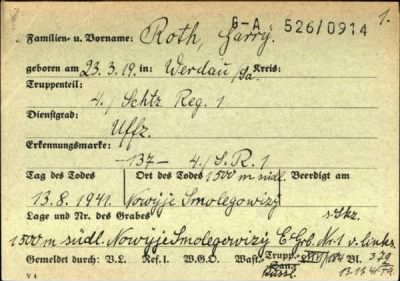 G-A 526/0914 1.
Familien- u. Vorname: Roth, Harry.
geboren am 23.3.19. in: Werdau/Sa. Kreis:
Truppenteil:
4./Schtz. Reg. 1
Dienstgrad:
Uffz.
Erkennungsmarke:
-137- 4./S.R.1
Tag des Todes Ort des Todes 1500 m südl. Beerdigt am
13.8.1941. Nowyje Smolegowizy
Lage und Nr. des Grabes s. Skz.
1500 m südl. Nowyje Smolegowizy E. Grb. Nr. 1 v. links
Gemeldet durch: V.L. Ref. I. W.G.O. Wast. Trupp. Bl. 329
V 4